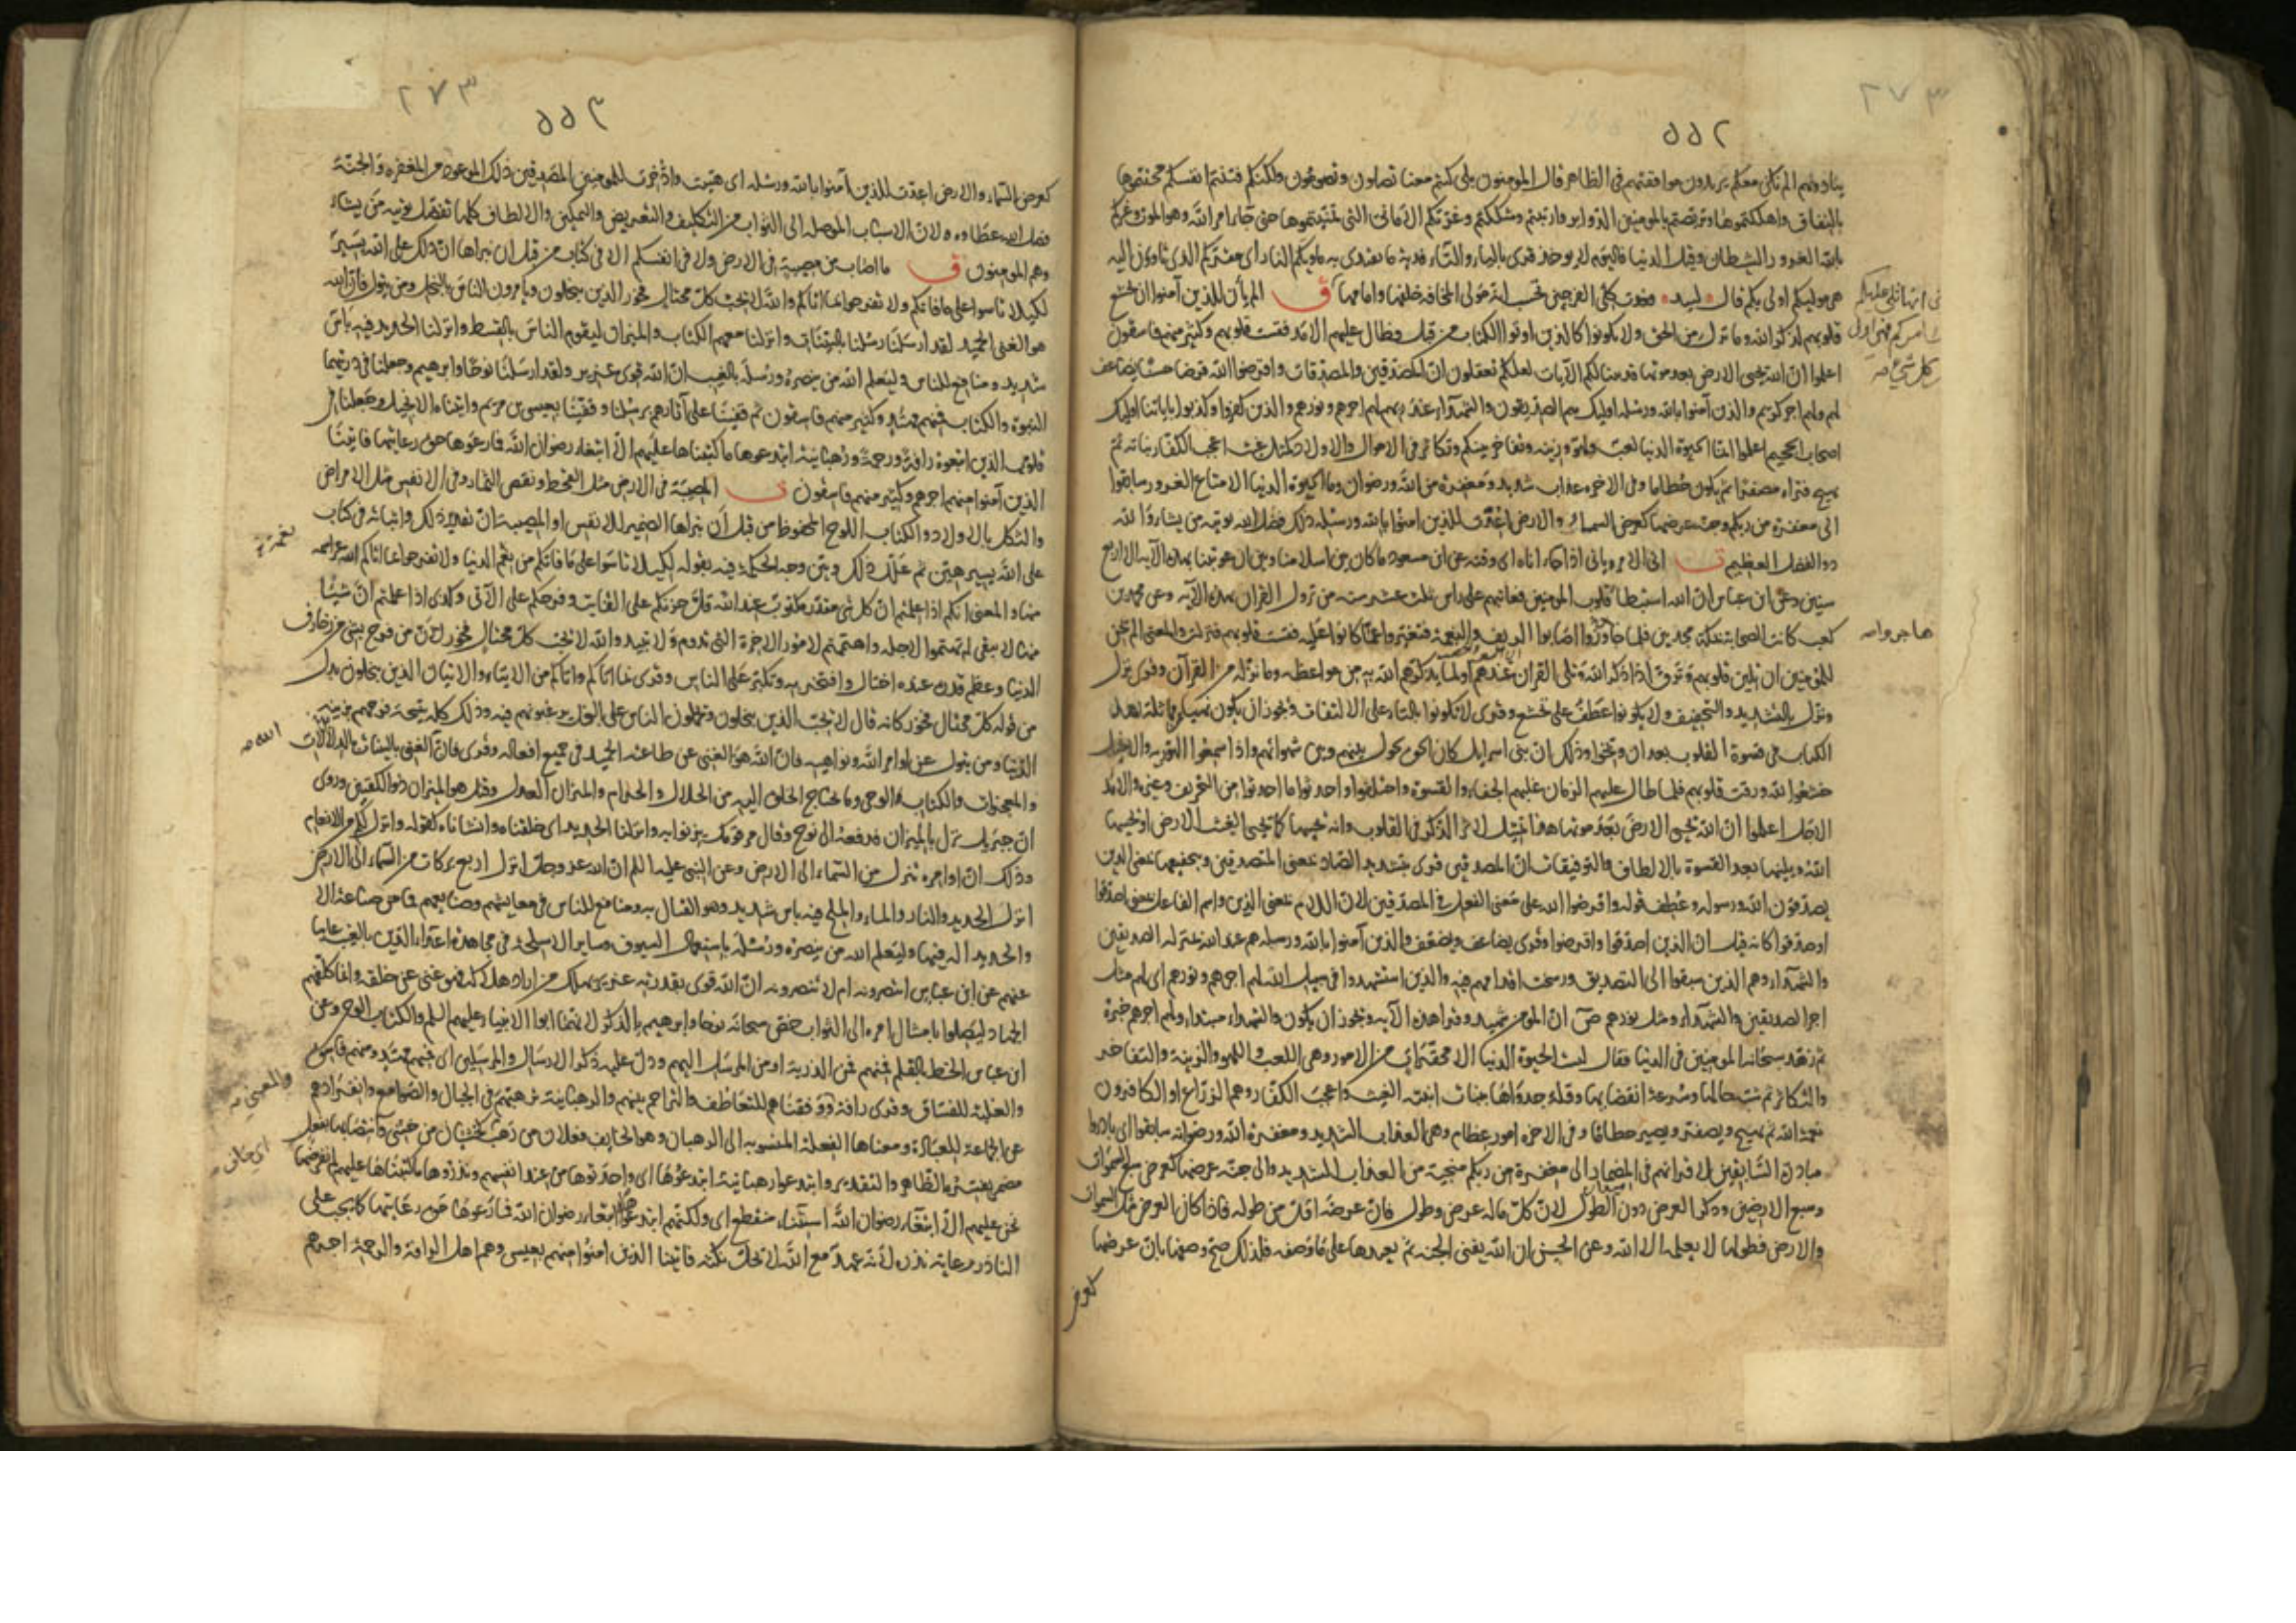 ٢٧٣
٥٥٢
ينادونهم الم نكن معكم يريدون موافقتهم في الظاهر قال المومنون بلى كنتم معنا تصلون وتصومون ولكنكم فتنتم انفسكم محنتموها
بالنفاق واهلكتموها وتربصتم بالمومنين الدواير وارتبتم وشككتم وغرتكم الاماني التي تمنيتموها حتى جاء امر الله وهو الموت وغركم
بالله الغرور الشيطان وقيل الدنيا فاليوم لا يوخذ قرى بالياء والتاء فدية ما يفتدى به ماويكم النار اى مقركم الذى تاوون اليه
هى موليكم اولى بكم قال لبيد فغدت كلى الفرجين تحسب انه مولى المخافة خلفها وامامها ق الم يأن للذين آمنوا ان تخشع
قلوبهم لذكر الله وما نزل من الحق ولا يكونوا كالذين اوتوا الكتاب من قبل وطال عليهم الامد فقست قلوبهم وكثير منهم فاسقون
اعلموا ان الله يحيى الارض بعد موتها قد بينا لكم الآيات لعلكم تعقلون ان المصدقين والمصدقات واقرضوا الله قرضا حسنا يضاعف
لهم ولهم اجر كريم والذين آمنوا بالله ورسله اوليك هم الصديقون والشهداء عند ربهم لهم اجرهم ونورهم والذين كفروا وكذبوا باياتنا اوليك
اصحاب الجحيم اعلموا انما الحيوة الدنيا لعب ولهو وزينة وتفاخر بينكم وتكاثر في الاموال والاولاد كمثل غيث اعجب الكفار نباته ثم
يهيج فتراه مصفرا ثم يكون حطاما وفى الاخرة عذاب شديد ومغفرة من الله ورضوان وما الحيوة الدنيا الا متاع الغرور سابقوا
الى مغفرة من ربكم وجنة عرضها كعرض السماء والارض اعدت للذين امنوا بالله ورسله ذلك فضل الله يوتيه من يشاء والله
ذو الفضل العظيم انى الامر يانى اذا جاء اناه اى وقته عن ابن مسعود ما كان بين اسلامنا وبين ان عوتبنا بهذه الآية الا اربع
سنين وعن ابن عباس ان الله استبطا قلوب المومنين فعاتبهم على راس ثلث عشرة سنة من نزول القران بهذه الآية وعن محمد بن
كعب كانت الصحابة بمكة مجدبين فلما هاجروا اصابوا الريف والنعمة فتغيروا عما كانوا عليه فقست قلوبهم فنزلت والمعنى الم يحن
للمومنين ان تلين قلوبهم وترق اذا ذكر الله وتلى القران عندهم او لما يذكرهم الله به من مواعظه وما نزله من القرآن وقرى نزل
ونزل بالتشديد والتخفيف ولا يكونوا عطف على تخشع وقرى لا تكونوا بالتاء على الالتفات ويجوز ان يكون نهيا لهم عن مماثلة اهل
الكتاب في قسوة القلوب بعد ان وبخوا وذلك ان بنى اسرايل كان الحق يحول بينهم وبين شهواتهم واذا سمعوا التورية والانجيل
خشعوا لله ورقت قلوبهم فلما طال عليهم الزمان غلبهم الجفاء والقسوة واختلفوا واحدثوا ما احدثوا من التحريف وغيره والامد
الاجل اعلموا ان الله يحيى الارض بعد موتها هذا تمثيل لاثر الذكر فى القلوب وانه يحييها كما يحيى الغيث الارض او يحييها
الله ويلينها بعد القسوة بالالطاف والتوفيقات ان المصدقين قرى بتشديد الصاد بمعنى المتصدقين وبتخفيفها بمعنى الذين
يصدقون الله ورسوله وعطف قوله واقرضوا الله على معنى الفعل في المصدقين لان اللام بمعنى الذين واسم الفاعل بمعنى اصدقوا
او صدقوا كانه قيل ان الذين اصدقوا واقرضوا وقرى يضاعف ويضعف والذين آمنوا بالله ورسله هم عند الله بمنزلة الصديقين
والشهداء وهم الذين سبقوا الى التصديق ورسخت اقدامهم فيه والذين استشهدوا في سبيل الله لهم اجرهم ونورهم اى لهم مثل
اجر الصديقين والشهداء ومثل نورهم ان المومن شهيد وقرا هذه الآية ويجوز ان يكون والشهداء مبتداء ولهم اجرهم خبره
ثم زهد سبحانه المومنين فى الدنيا فقال ليست الحيوة الدنيا الا محقرات من الامور وهى اللعب واللهو والزينة والتفاخر
والتكاثر ثم شبه حالها وسرعة انقضايها وقلة جدواها بنبات انبته الغيث واعجب الكفار وهم الزراع او الكافرون
نعمة الله ثم يهيج ويصفر ويصير حطاما وفى الاخرة امور عظام وهى العذاب الشديد ومغفرة الله ورضوانه سابقوا اى بادروا
مبادرة السابقين لاقرانهم فى المضمار الى مغفرة من ربكم منجية من العذاب الشديد والى جنة عرضها كعرض سبع السموات
وسبع الارضين وذكر العرض دون الطول لان كل ماله عرض وطول فان عرضه اقل من طوله فاذا كان العرض مثل السموات
والارض فطولها لا يعلمه الا الله وعن الحسن ان الله يفنى الجنة ثم يعيدها على ما وصفه فلذلك صح وصفها بان عرضها
كعرض
هاجروا صه
٢٧٣
٥٥٣
كعرض السماء والارض اعدت للذين آمنوا بالله ورسله اى هيئت وادخرت للمومنين المصدقين ذلك الموعود من المغفرة والجنة
فضل الله عطاوه لان الاسباب الموصلة الى الثواب من التكليف والتعريض والتمكين والالطاف كلها تفضل يوتيه من يشاء
وهم المومنون ق ما اصاب من مصيبة فى الارض ولا فى انفسكم الا فى كتاب من قبل ان نبراها ان ذلك على الله يسير
لكيلا تاسوا على ما فاتكم ولا تفرحوا بما اتاكم والله لا يحب كل مختال فخور الذين يبخلون ويامرون الناس بالبخل ومن يتول فان الله
هو الغنى الحميد لقد ارسلنا رسلنا بالبينات وانزلنا معهم الكتاب والميزان ليقوم الناس بالقسط وانزلنا الحديد فيه باس
شديد ومنافع للناس وليعلم الله من ينصره ورسله بالغيب ان الله قوى عزيز ولقد ارسلنا نوحا وابرهيم وجعلنا فى ذريتهما
النبوة والكتاب فمنهم مهتد وكثير منهم فاسقون ثم قفينا على آثارهم برسلنا وقفينا بعيسى بن مريم واتيناه الانجيل وجعلنا فى
قلوب الذين اتبعوه رافة ورحمة ورهبانية ابتدعوها ما كتبناها عليهم الا ابتغاء رضوان الله فما رعوها حق رعايتها فاتينا
الذين آمنوا منهم اجرهم وكثير منهم فاسقون المصيبة فى الارض مثل القحط ونقص الثمار وفى الانفس مثل الامراض
والثكل بالاولاد والكتاب اللوح المحفوظ من قبل ان نبراها الضمير للانفس او المصيبة ان تقدير ذلك واثباته فى كتاب
على الله يسير هين ثم علل ذلك وبين وجه الحكمة فيه بقوله لكيلا تاسوا على ما فاتكم من نعم الدنيا ولا تفرحوا بما اتاكم الله عز اسمه
منها والمعنى انكم اذا علمتم ان كل شى مقدر مكتوب عند الله قل حزنكم على الفايت وفرحكم على الآتى وكذى اذا علمتم ان شيئا
منها لا يبقى لم تهتموا لاجله واهتممتم لامور الاخرة التى تدوم ولا تبيد والله لا يحب كل مختال فخور لان من فرح بشى من زخارف
الدنيا وعظم قدره عنده اختال وافتخر به وتكبر على الناس وقرى بما اتاكم واتاكم من الايتاء والاتيان الذين يبخلون بدل
من قوله كل مختال فخور كانه قال لا يحب الذين يبخلون ويحملون الناس على البخل ويرغبونهم فيه وذلك كله نتيجة فرحهم بزينة
الدنيا ومن يتول عن اوامر الله ونواهيه فان الله هو الغنى عن طاعته الحميد فى جميع افعاله وقرى فان الغنى بالبينات بالدلالات
والمعجزات والكتاب الوحى وما يحتاج الخلق اليه من الحلال والحرام والميزان العدل وقيل هو الميزان ذو الكفتين وروى
ان جبريل نزل بالميزان فدفعه الى نوح وقال مر قومك يزنوا به وانزلنا الحديد اى خلقناه وانشاناه كقوله وانزل لكم من الانعام
وذلك ان اوامره تنزل من السماء الى الارض وعن النبى عليه السلم ان الله عز وجل انزل اربع بركات من السماء الى الارض
انزل الحديد والنار والماء والملح فيه باس شديد وهو القتال به ومنافع للناس فى معايشهم وصنايعهم فما من صناعة الا
والحديد آلة فيها وليعلم الله من ينصره ورسله باستعمال السيوف وساير الاسلحة فى مجاهدة اعداء الدين بالغيب غايبا
عنهم عن ابن عباس ينصرونه ام لا ينصرونه ان الله قوى بقدرته عزيز يهلك من اراد هلاكه فهو غنى عن خلقه وانما كلفهم
الجهاد ليصلوا بامتثال امره الى الثواب خص سبحانه نوحا وابرهيم بالذكر لانهما ابوا الانبياء عليهم السلم والكتاب الوحى وعن
ابن عباس الخط بالقلم فمنهم فمن الذرية او من المرسل اليهم ودل عليه ذكر الارسال والمرسلين اى فمنهم مهتد ومنهم فاسق
والغلبة للفساق وقرى رافة ووفقناهم للتعاطف والتراحم بينهم والرهبانية ترهبهم فى الجبال والصوامع وانفرادهم
عن الجماعة للعبادة ومعناها الفعلة المنسوبة الى الرهبان وهو الخايف فعلان من رهب كخشيان من خشى وانتصابها بفعل
مضمر يفسره الظاهر والتقدير وابتدعوا رهبانية ابتدعوها اى واحدثوها من عند انفسهم ونذروها ما كتبناها عليهم لم نفرضها
نحن عليهم الا ابتغاء رضوان الله استثناء منقطع اى ولكنهم ابتدعوها ابتغاء رضوان الله فما رعوها حق رعايتها كما يجب على
الناذر رعاية نذره لانه عهد مع الله لا يحل نكثه فاتينا الذين امنوا منهم بعيسى وهم اهل الرافة والرحمة اجرهم
الله صه
والمعنى صه